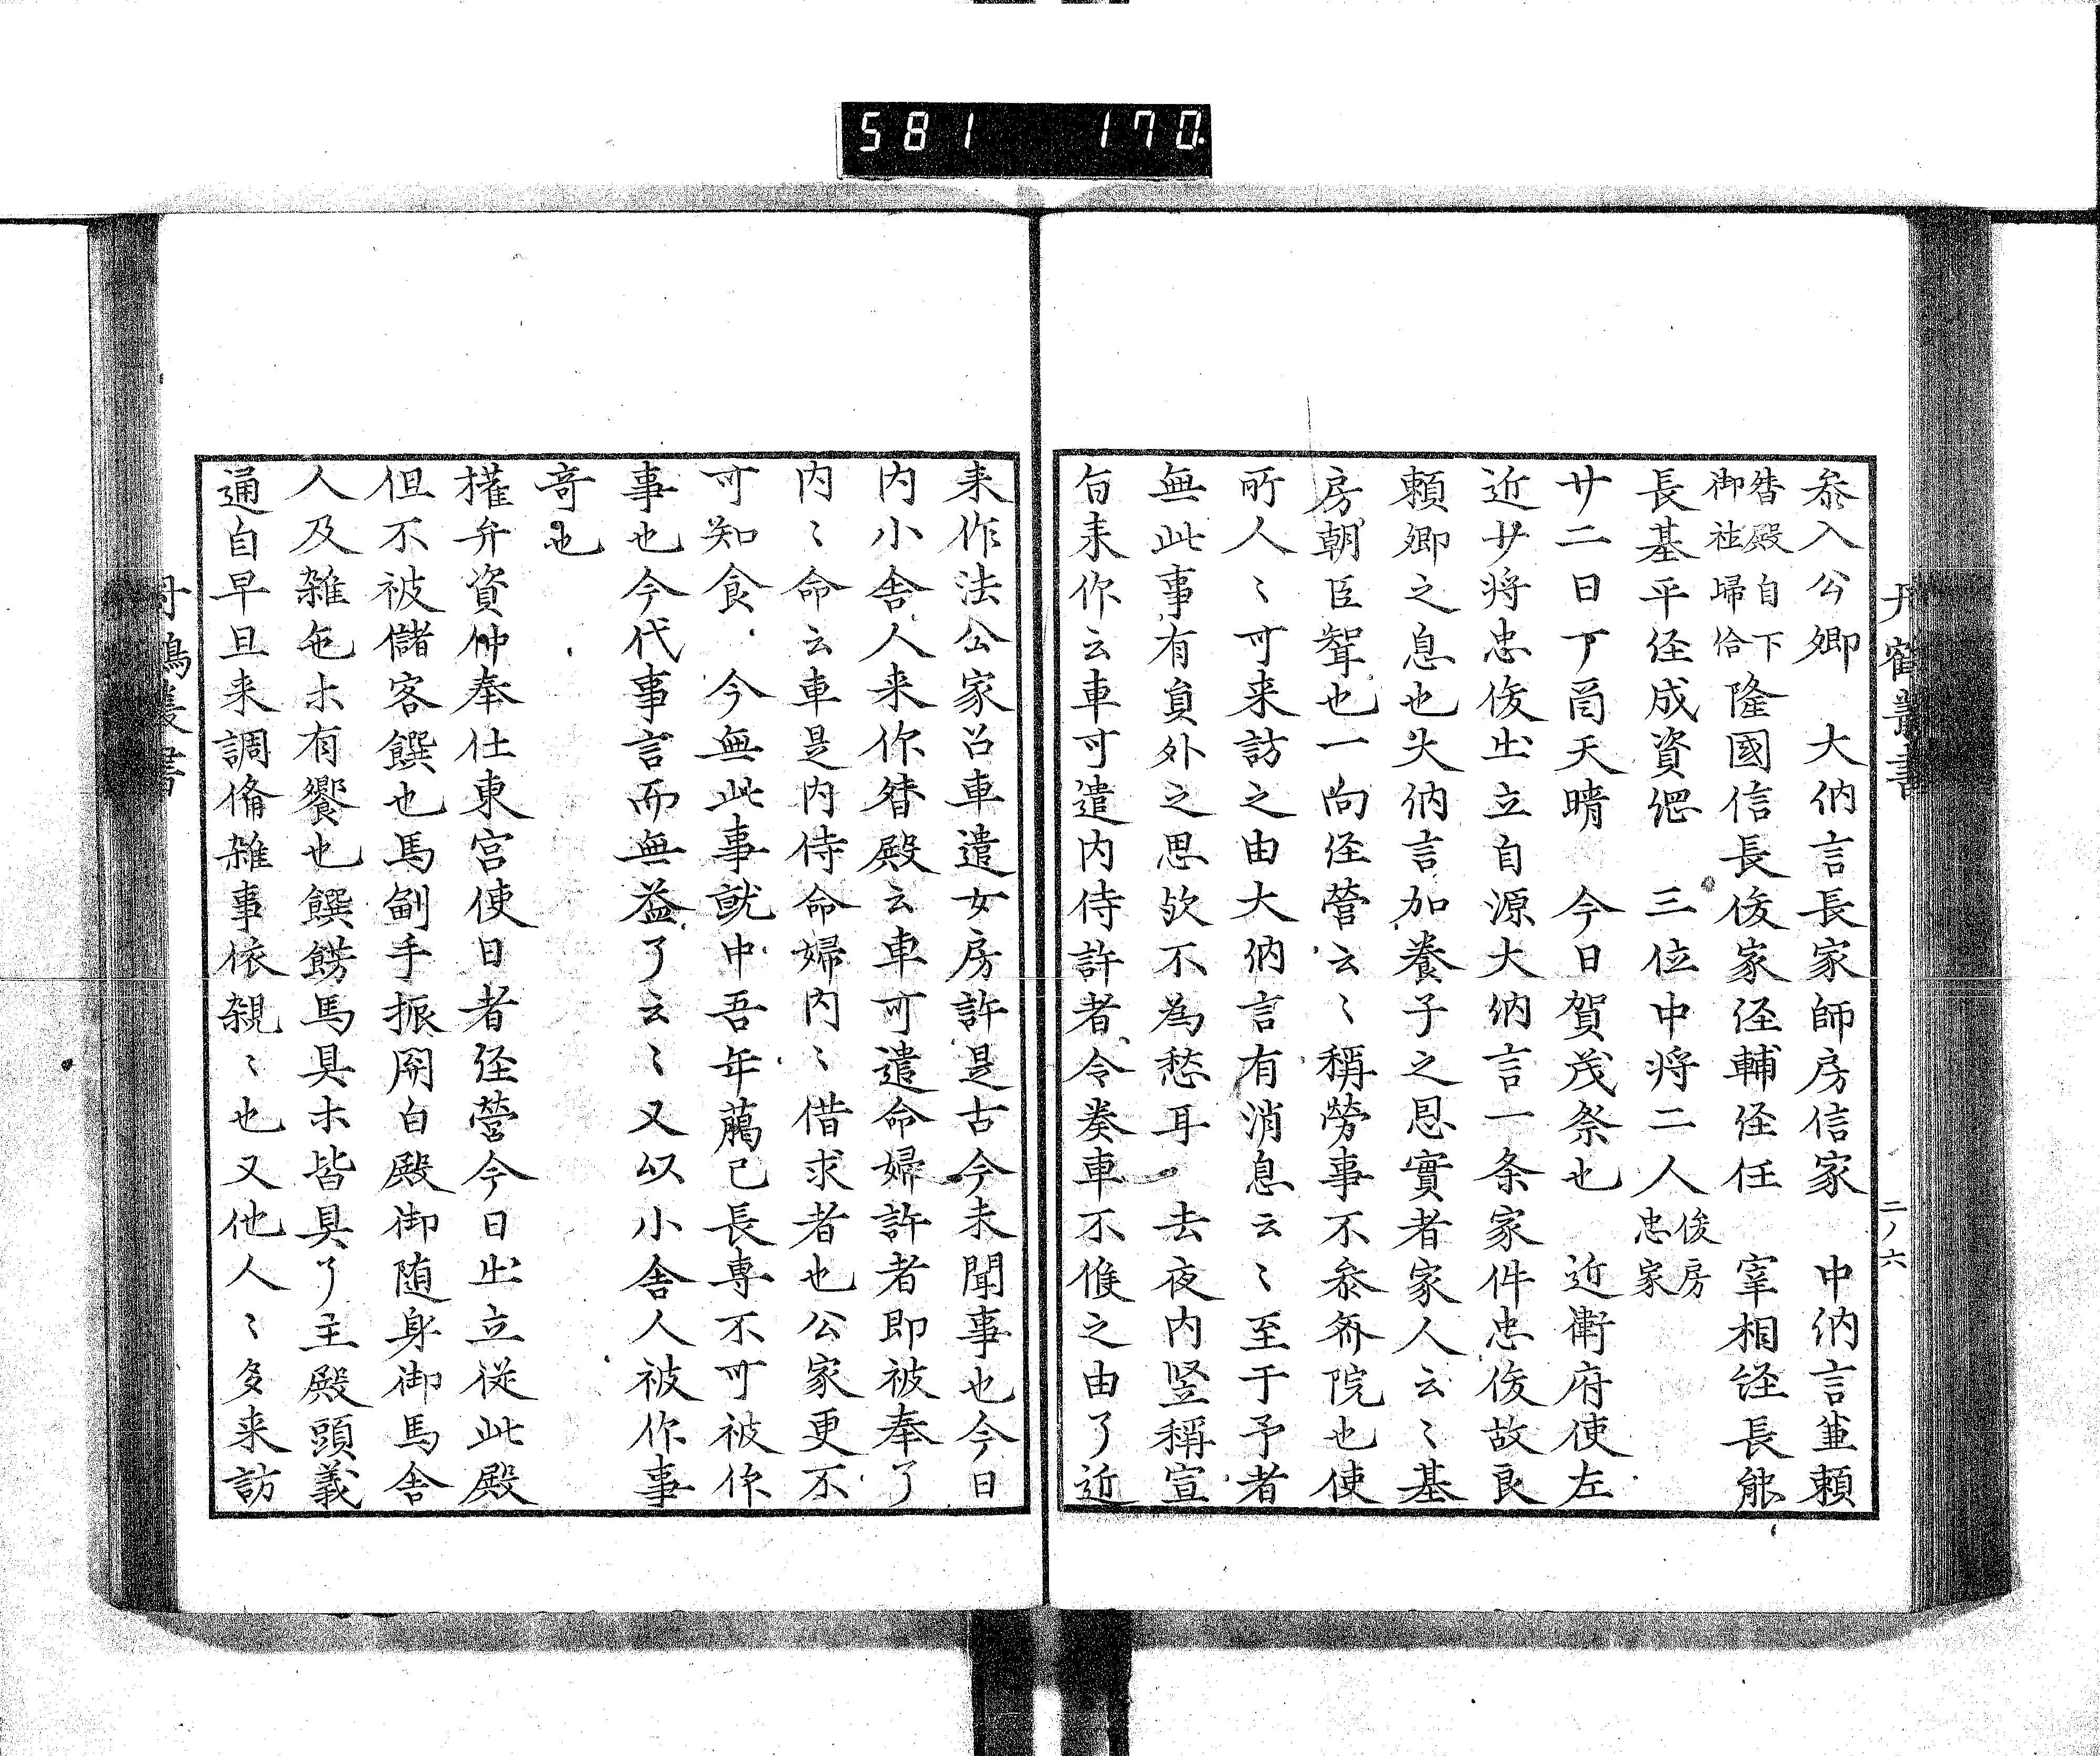 581 170
丹鶴叢書
二ノ六
参入公卿 大納言長家師房信家 中納言兼頼
督殿自下
御社帰給
隆國信長俊家経輔経任 宰相経長能
長基平経成資綱 三位中将二人
俊房
忠家
廿二日丁酉天晴 今日賀茂祭也 近衛府使左
近少将忠俊出立自源大納言一条家件忠俊故良
頼卿之息也大納言加養子之恩實者家人云〻基
房朝臣聟也一向経營云〻稱勞事不参斎院也使
所人〻可来訪之由大納言有消息云〻至于予者
無此事有員外之思歟不為愁耳 去夜内竪稱宣
旨来作云車可遣内侍許者令奏車不候之由了近
来作法公家召車遣女房許是古今未聞事也今日
内小舎人来作督殿云車可遣命婦許者即被奉了
内〻命云車是内侍命婦内〻借求者也公家更不
可知食 今無此事就中吾年﨟已長専不可被作
事也今代事言而無益了云〻又以小舎人被作事
竒也
權弁資仲奉仕東宮使日者経營今日出立従此殿
但不被儲客饌也馬副手振関白殿御随身御馬舎
人及雑色木有饗也饌餝馬具木皆具了主殿頭義
通自早旦来調備雑事依親〻也又他人〻多来訪
丹鶴叢書